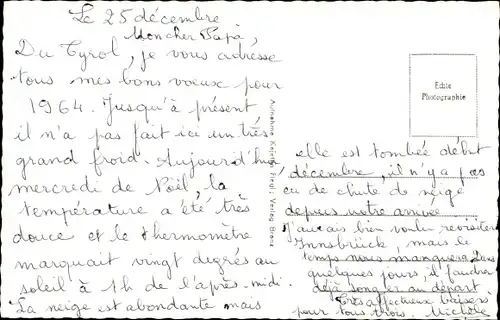 Le 25 décembre
Mon cher Papa,
Du Tyrol, je vous adresse
tous mes bons voeux pour
1964. Jusqu'à présent
il n'a pas fait ici un très
grand froid. Aujourd'hui,
mercredi de Noël, la
température a été très
douce et le thermomètre
marquait vingt degrés au
soleil à 1h de l'après-midi.
La neige est abondante mais
elle est tombée début
décembre, il n'y a pas
eu de chute de neige
depuis notre arrivée
J'aurais bien voulu revisiter
Innsbrück, mais le
temps nous manquera. Dans
quelques jours il faudra
déjà songer au départ.
Très affectueux baisers
pour tous trois.
Echte
Photographie
Aufnahme Verlag